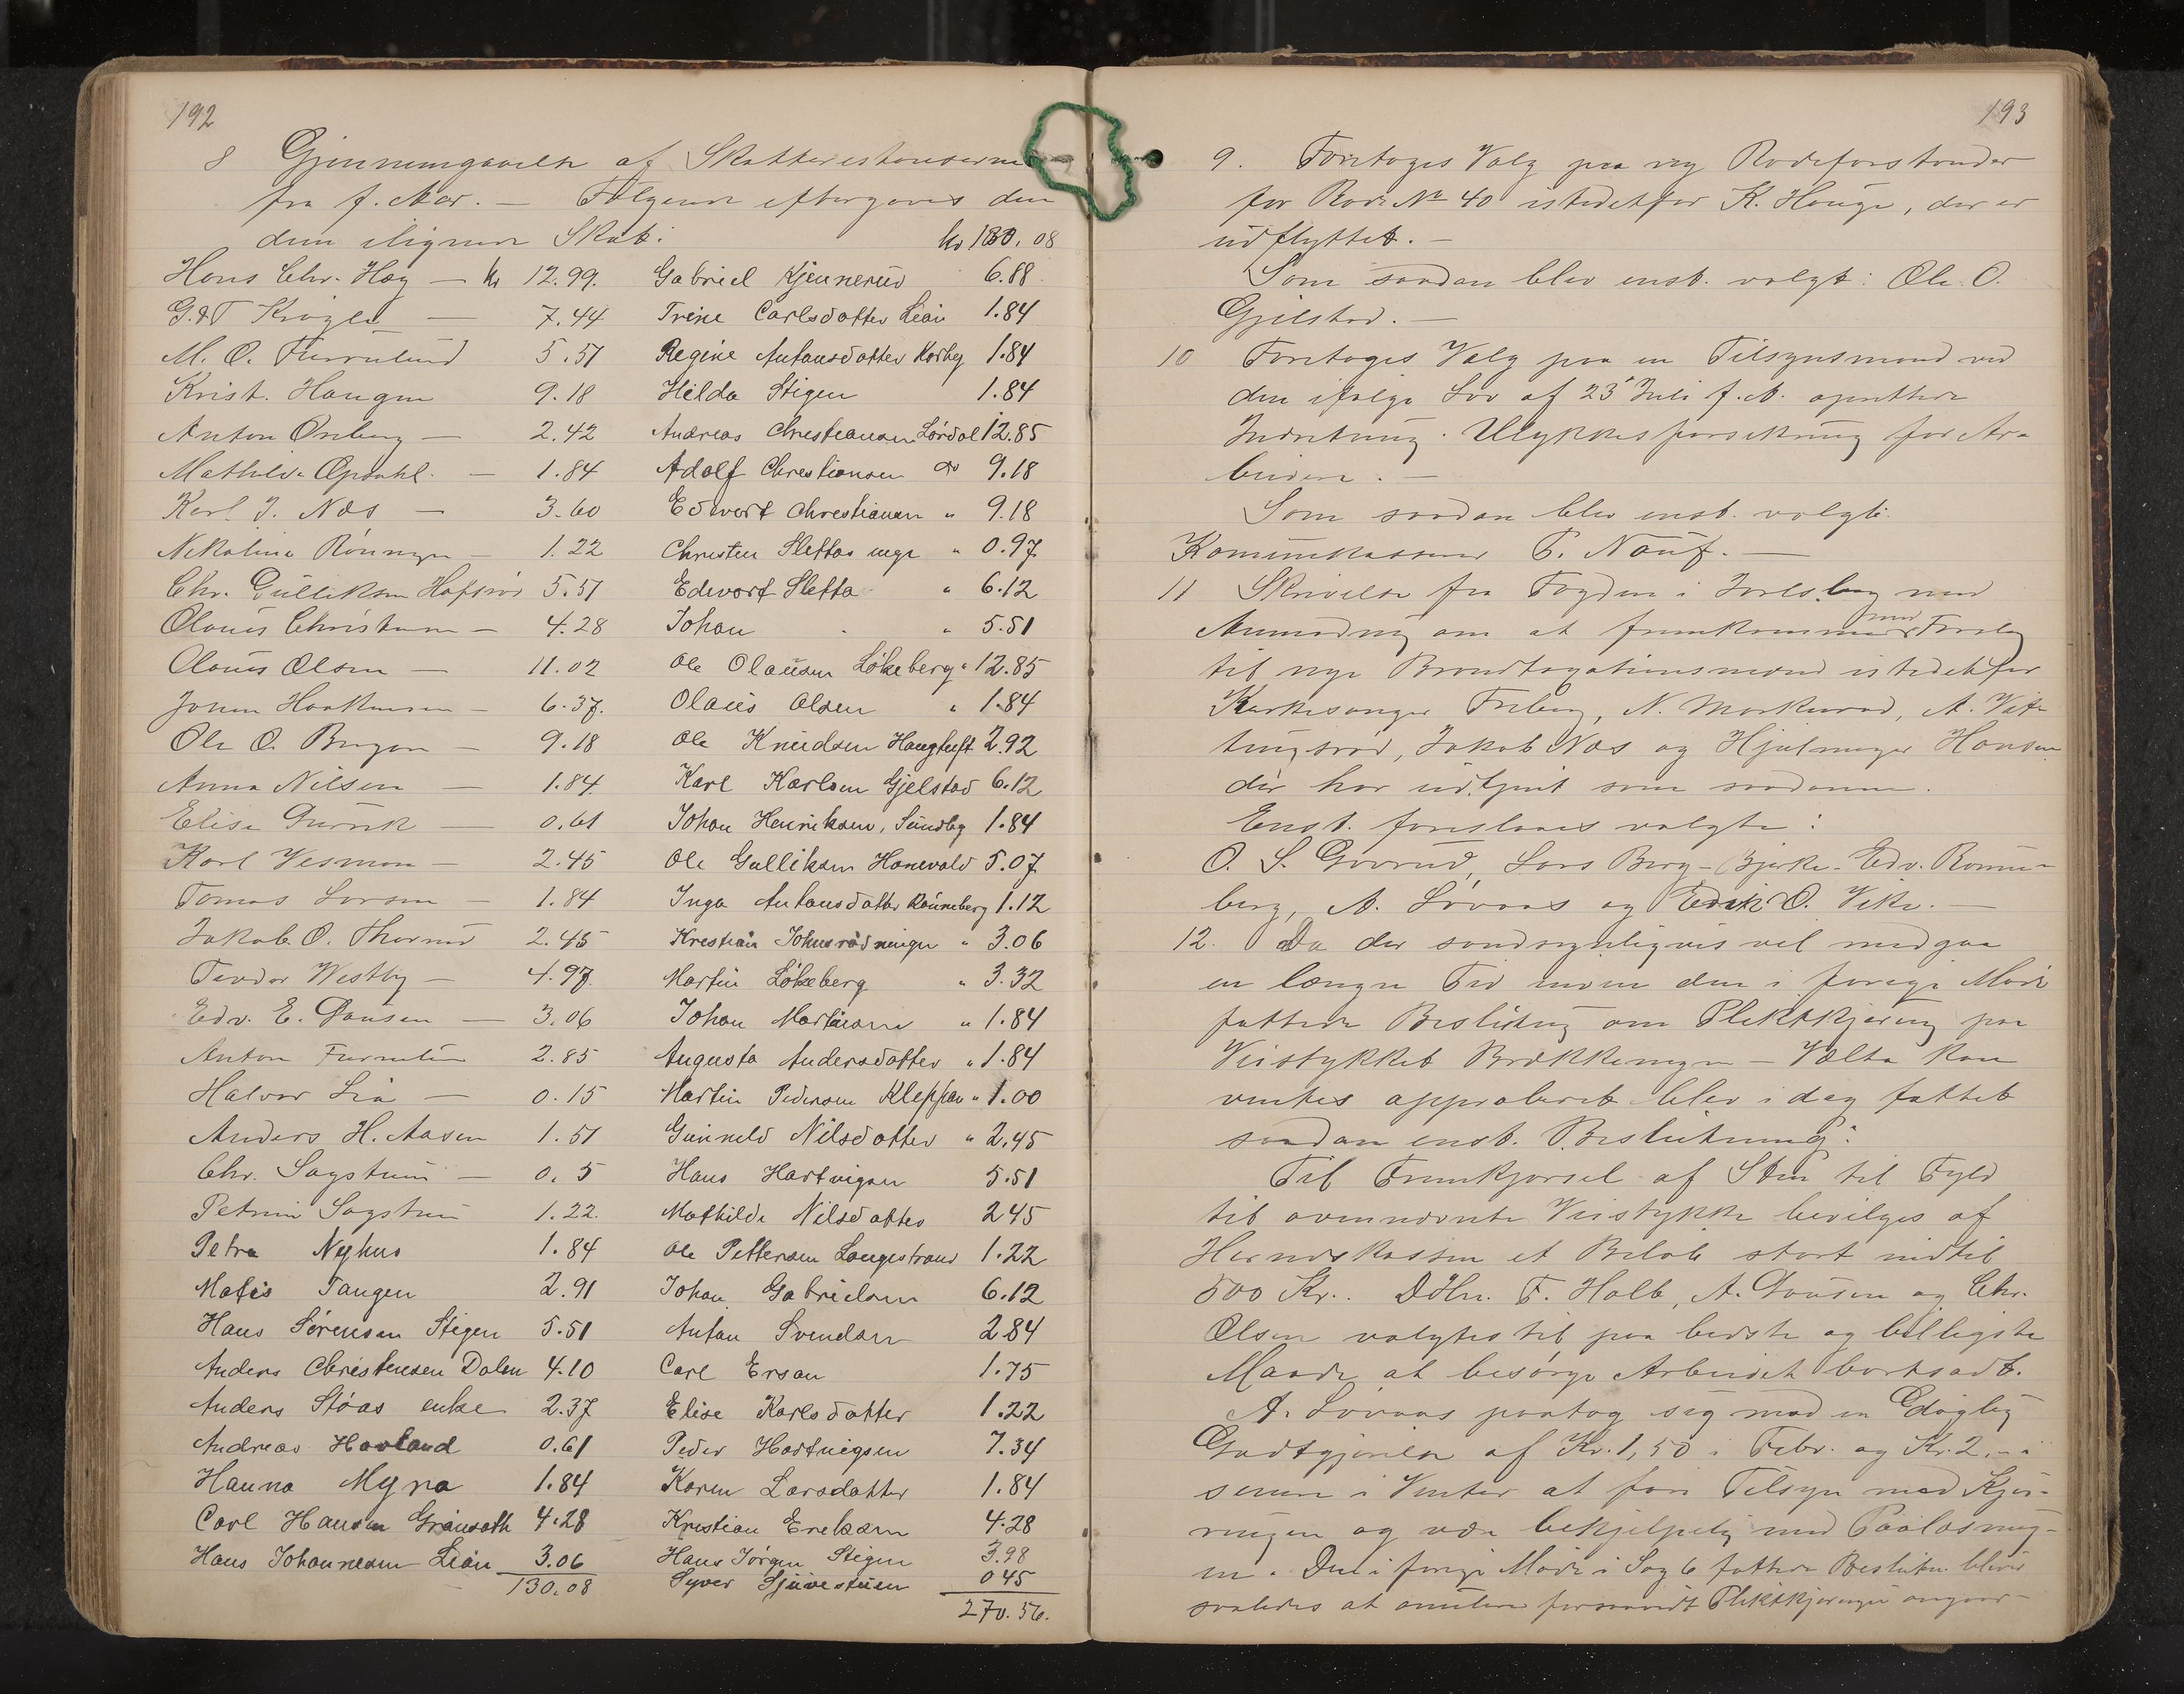 192
8 Gjennemgaaelse af Skatterestanserne
fra f. Aar. — Følgende eftergaves den
dem ilignede Skat: kr 130.08
Hans Chr. Hæg — kr 12.99.
G. & T Krogh — 7.44
M. O. Furulund 5.51
Krist. Haugen 9.18
Anton Oreberg — 2.42
Mathilde Opdahl. — 1.84
Karl J. Næs — 3.60
Nikoline Rønningen — 1.22
Chr. Gulliksen Hafsrød 5.51
Olaus Christensen — 4.28
Olaus Olsen — 11.02
Johan Haakensen — 6.37.
Ole O. Bergan — 9.18
Anna Nilsen — 1.84
Elise Durek — 0.61
Karl Wesman — 2.45
Tomas Larsen — 1.84
Jakob O. Thorrud 2.45
Teodor Westby — 4.97.
Edv. E. Paulsen — 3.06
Anton Furulund 2.85
Halvor Lia — 0.15
Anders H. Aasen 1.51
Chr. Sagstuen — 0.5
Petrine Sagstuen 1.22.
Petra Nyhus 1.84
Matis Tangen 2.91
Hans Sørensen Stigen 5.51
Anders Christensen Dalen 4.10
Anders Stóas enke 2.37
Andreas Havland 0.61
Hanna Myra 1.84
Carl Hansen 4.28
Hans Johannesen Leán 3.06
130.08
Gabriel Kjennerud 6.88
Trine Carlsdatter Leán 1.84
Regine Antansdatter Korbey 1.84
Hilda Stigen 1.84
Andreas Christiansen Lørdal 12.85
Adolf Christiansen do 9.18
Edvart Christiansen " 9.18
Christen Slettas " 0.97
Edevart Sletta " 6.12
Johan " " 5.51
Ole Olausen Løkeberg " 12.85
Olaus Olsen " 1.84
Ole Knudsen Haugtuft 2.92
Karl Karlsen Gjelstad 6.12
Johan Henriksen, Sundby 1.84
Ole Gulliksen Hanevold 5.07
Inga Antonsdatter Rauneberg 1.12
Krestian Johnsrødningen " 3.06
Martin Løkeberg " 3.32
Johan Martinsen " 1.84
Augusta Andersdatter " 1.84
Martin Pedersen Kleppan " 1.00
Gunneld Nilsdatter " 2.45
Hans Hartvigsen 5.51
Mathilde Nilsdatter 245
Ole Pettersen Langestrand 1.22
Johan Gabrielsen 6.12
Antan Svendsen 284
Carl Ersan 1.75
Elise Karlsdatter 1.22
Peder Hartvigsen 7.34
Karen Larsdatter 1.84
Kristian Ereksen 4.28
Hans Jørgen Stigen 3.98
Syver Sjuvestuen 045
270.56.
193
9. Foretoges Valg paa ny Rodeforstander
for Rode No 40 istedetfor K. Hauge, der er
udflyttet. —
Som saadan blev enst. valgt: Ole O.
Gjelstad. —
10 Foretoges Valg paa en Tilsynsmand ved
den ifølge Lov af 23 Juli f. A. oprettede
Indretning: Ulykkesforsikring for Ar-
beidere. —
Som saadan blev enst. valgt:
Komunekasserer P. Nauf. —
11 Skrivelse fra Fogden i Jarlsberg med
Anmodning om at fremkomme med Forslag
til nye Brandtaxationsmænd istedetfor
Kirkesanger Friberg, N. Morkerød, A. Vit-
tingsrød, Jakob Næs og Hjulmager Hansen
der har udtjent som saadanne.
Enst. foreslaaes valgte:
O. S. Govrud, Lars Berg-Bjerke. Edv. Ramn-
berg, A. Løvaas og Edvik O. Vike. —
12. Da der sandsynligvis vil medgaa
en længre Tid inden den i forrige Møde
fattede Beslutning om Pliktkjøring paa
Veistykket Brækkemyren — Vælta kan
ventes approberet blev idag fattet
saadan enst. Beslutning:
Til Fremkjørsel af Sten til Fyld
til ovennævnte Veistykke bevilges af
Herredskassen et Beløb stort indtil
500 Kr.. DHr. F. Holt, A. Paulsen og Chr.
Olsen valgtes til paa bedste og billigste
Maade at besørge Arbeidet bortsadt.
A. Løvaas paatog sig mod en Godtgjørelse
af Kr. 1,50 i Febr. og Kr. 2,- i
senere i Vinter at føre Tilsyn med Kjø-
ringen og være behjelpelig med Paalæsning-
en. Den i forrige Møde i Sag 6 fattede Beslutn. bliver
saaledes at annullere forsaavidt Pliktkjøringen angaar —